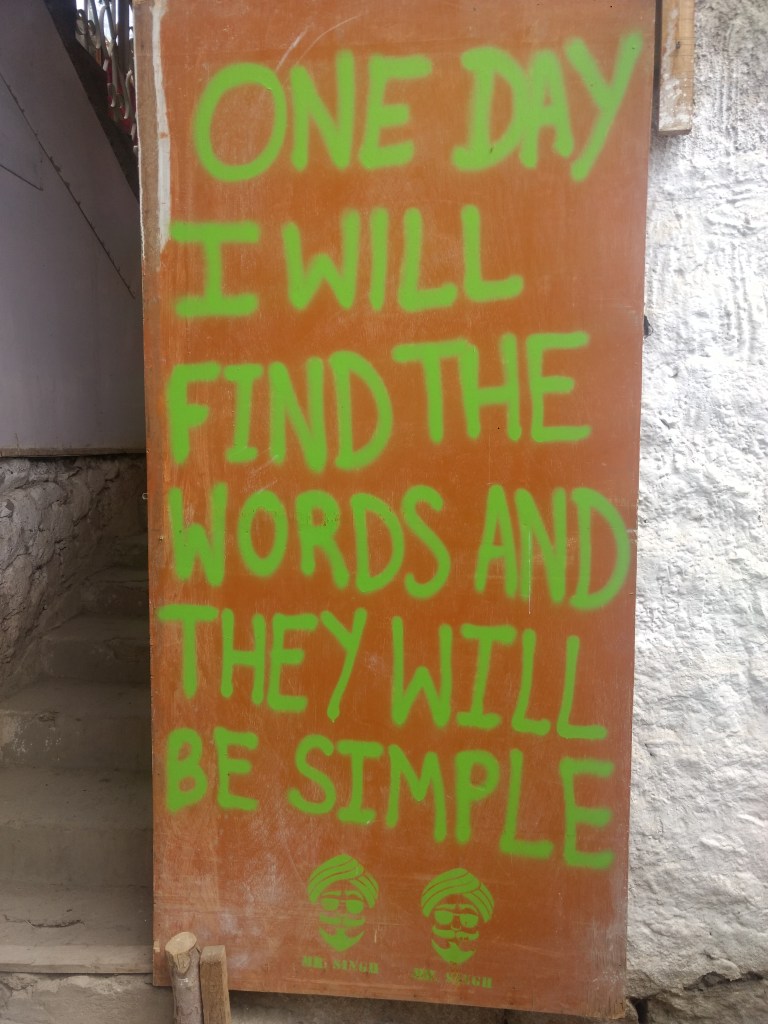 ONE DAY
I WILL
FIND THE
WORDS AND
THEY WILL
BE SIMPLE
MR. SINGH MR. SINGH